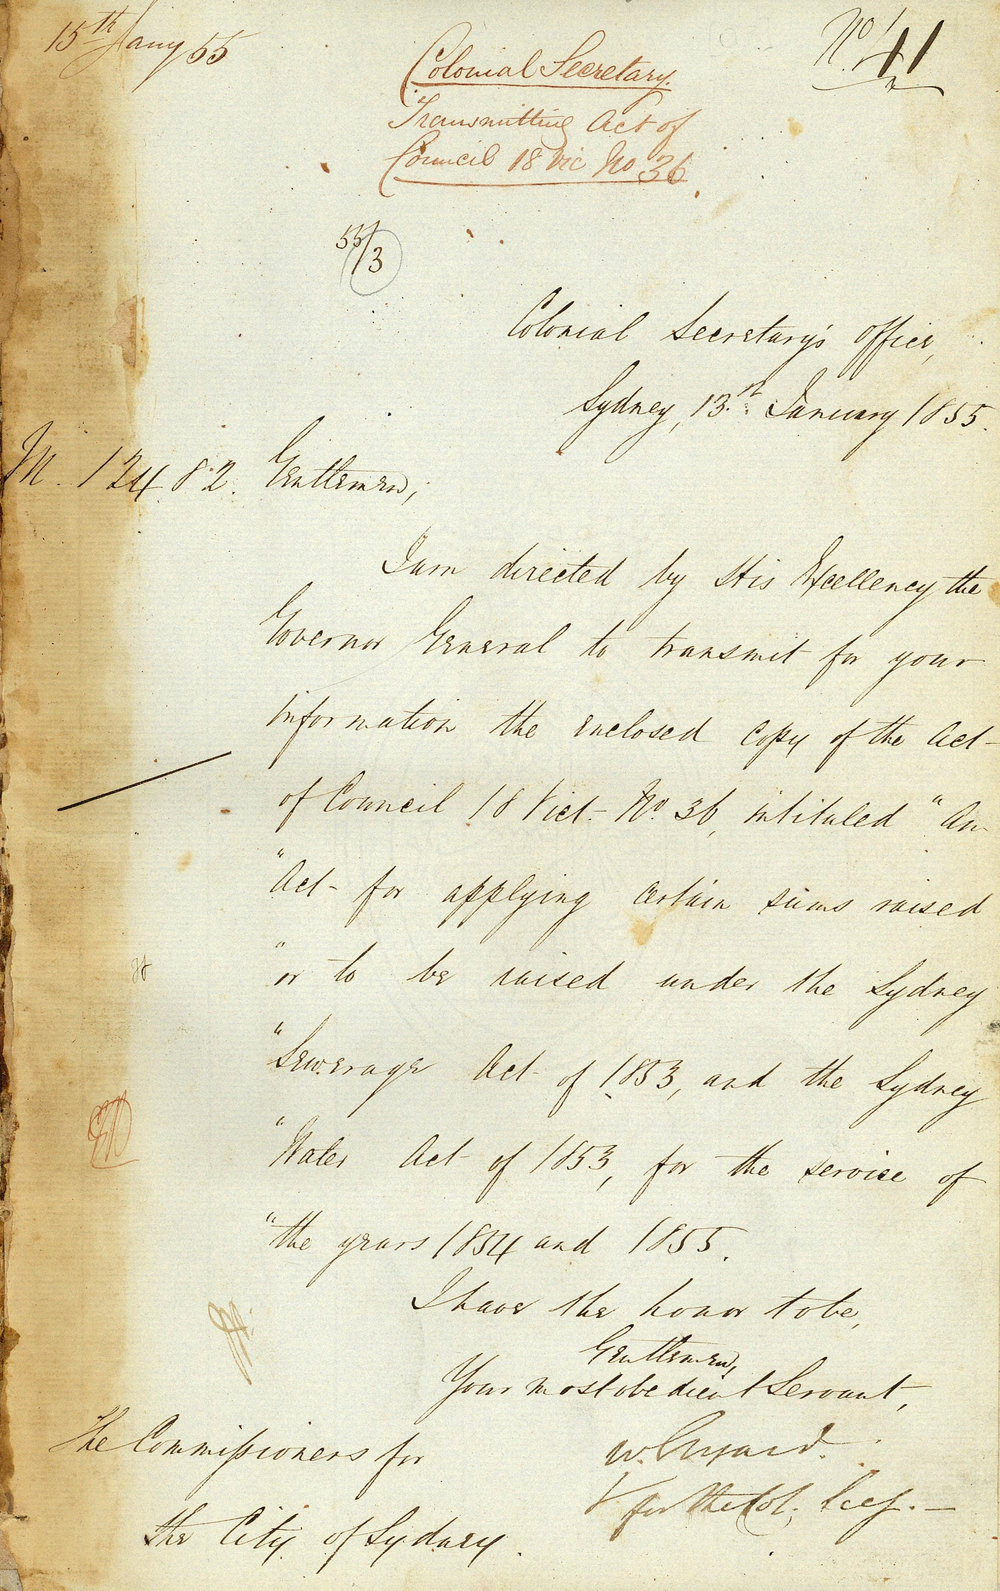 15th Jany 55
No. 41
Colonial Secretary.
Transmitting Act of
Council 18 Vic No 36.
55/3
Colonial Secretary's Office,
Sydney, 13.st January 1855.
M. 12482. Gentlemen,
I am directed by His Excellency the
Governor General to transmit for your
information the enclosed copy of the Act
of Council 18 Vict. No. 36, intituled "An
"Act for applying certain sums raised
"or to be raised under the Sydney
"Sewerage Act of 1853, and the Sydney
"Water Act of 1853, for the service of
"the years 1854 and 1855.
I have the honor to be,
Gentlemen,
Your most obedient Servant,
W.
for the Col. Secy.
The Commissioners for
the City of Sydney.